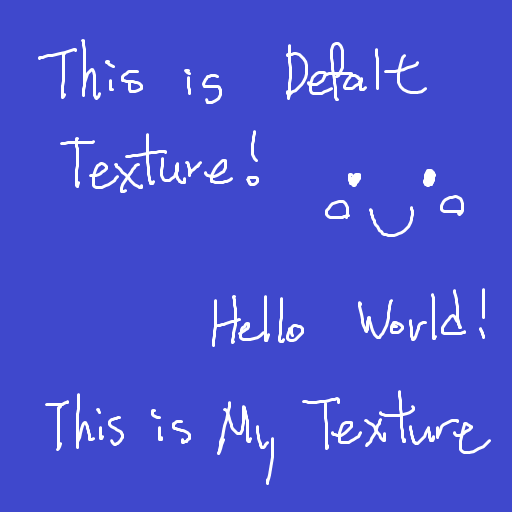 This is Defalt
Texture!
Hello World!
This is My Texture